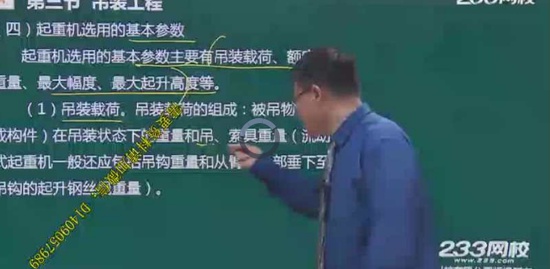 第三节 吊装工程
233网校
四）起重机选用的基本参数
起重机选用的基本参数主要有吊装载荷、额
重量、最大幅度、最大起升高度等。
（1）吊装载荷。吊装载荷的组成：被吊物
或构件）在吊装状态下的重量和吊、索具重量（流动
式起重机一般还应包括吊钩重量和从 部垂下至
吊钩的起升钢丝绳重量）。
D1409057989
233网校
www.233.com